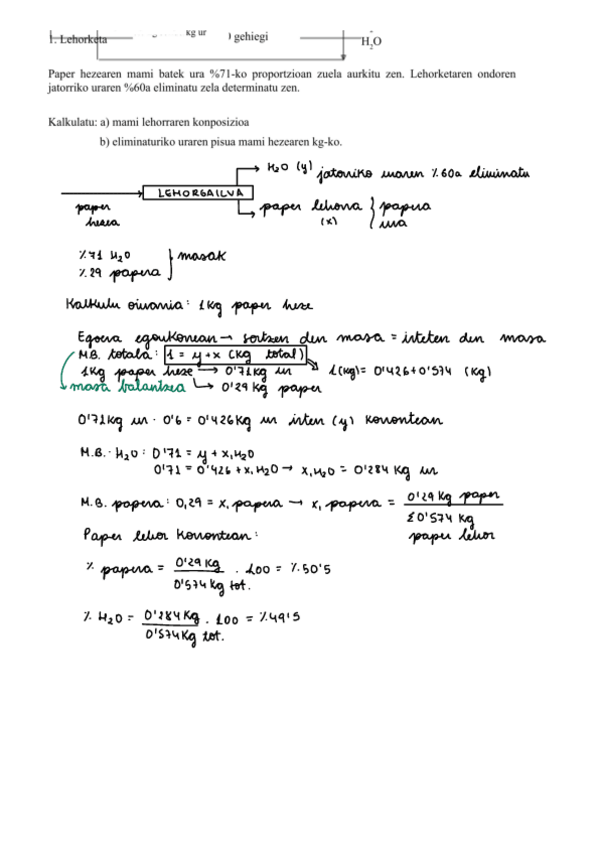 1. Lehorketa
kg ur
gehiegi
H2O
Paper hezearen mami batek ura %71-ko proportzioan zuela aurkitu zen. Lehorketaren ondoren
jatorriko uraren %60a eliminatu zela determinatu zen.
Kalkulatu: a) mami lehorraren konposizioa
b) eliminaturiko uraren pisua mami hezearen kg-ko.
H2O (y) jatorriko uraren %60a eliminatu
LEHORGAILUA
paper hezea
paper lehorra (x) } papera
ura
%71 H2O
%29 papera } masak
Kalkulu oinarria: 1kg paper heze
Egoera egonkorrean → sartzen den masa = irteten den masa
M.B. totala: 1 = y+x (kg total)
1kg paper heze → 0'71kg ur 1(kg)= 0'426+0'574 (kg)
masa balantzea → 0'29kg paper
0'71kg ur · 0'6 = 0'426kg ur irten (y) korrontean
M.B. H2O: 0'71 = y + x, H2O
0'71 = 0'426 + x, H2O → x, H2O = 0'284 kg ur
M.B. papera: 0,29 = x, papera → x, papera = 0'29 kg paper
Σ0'574 kg
paper lehor
Paper lehor korrontean:
% papera = 0'29kg / 0'574kg tot. · 100 = %50'5
% H2O = 0'284kg / 0'574kg tot. · 100 = %49'5